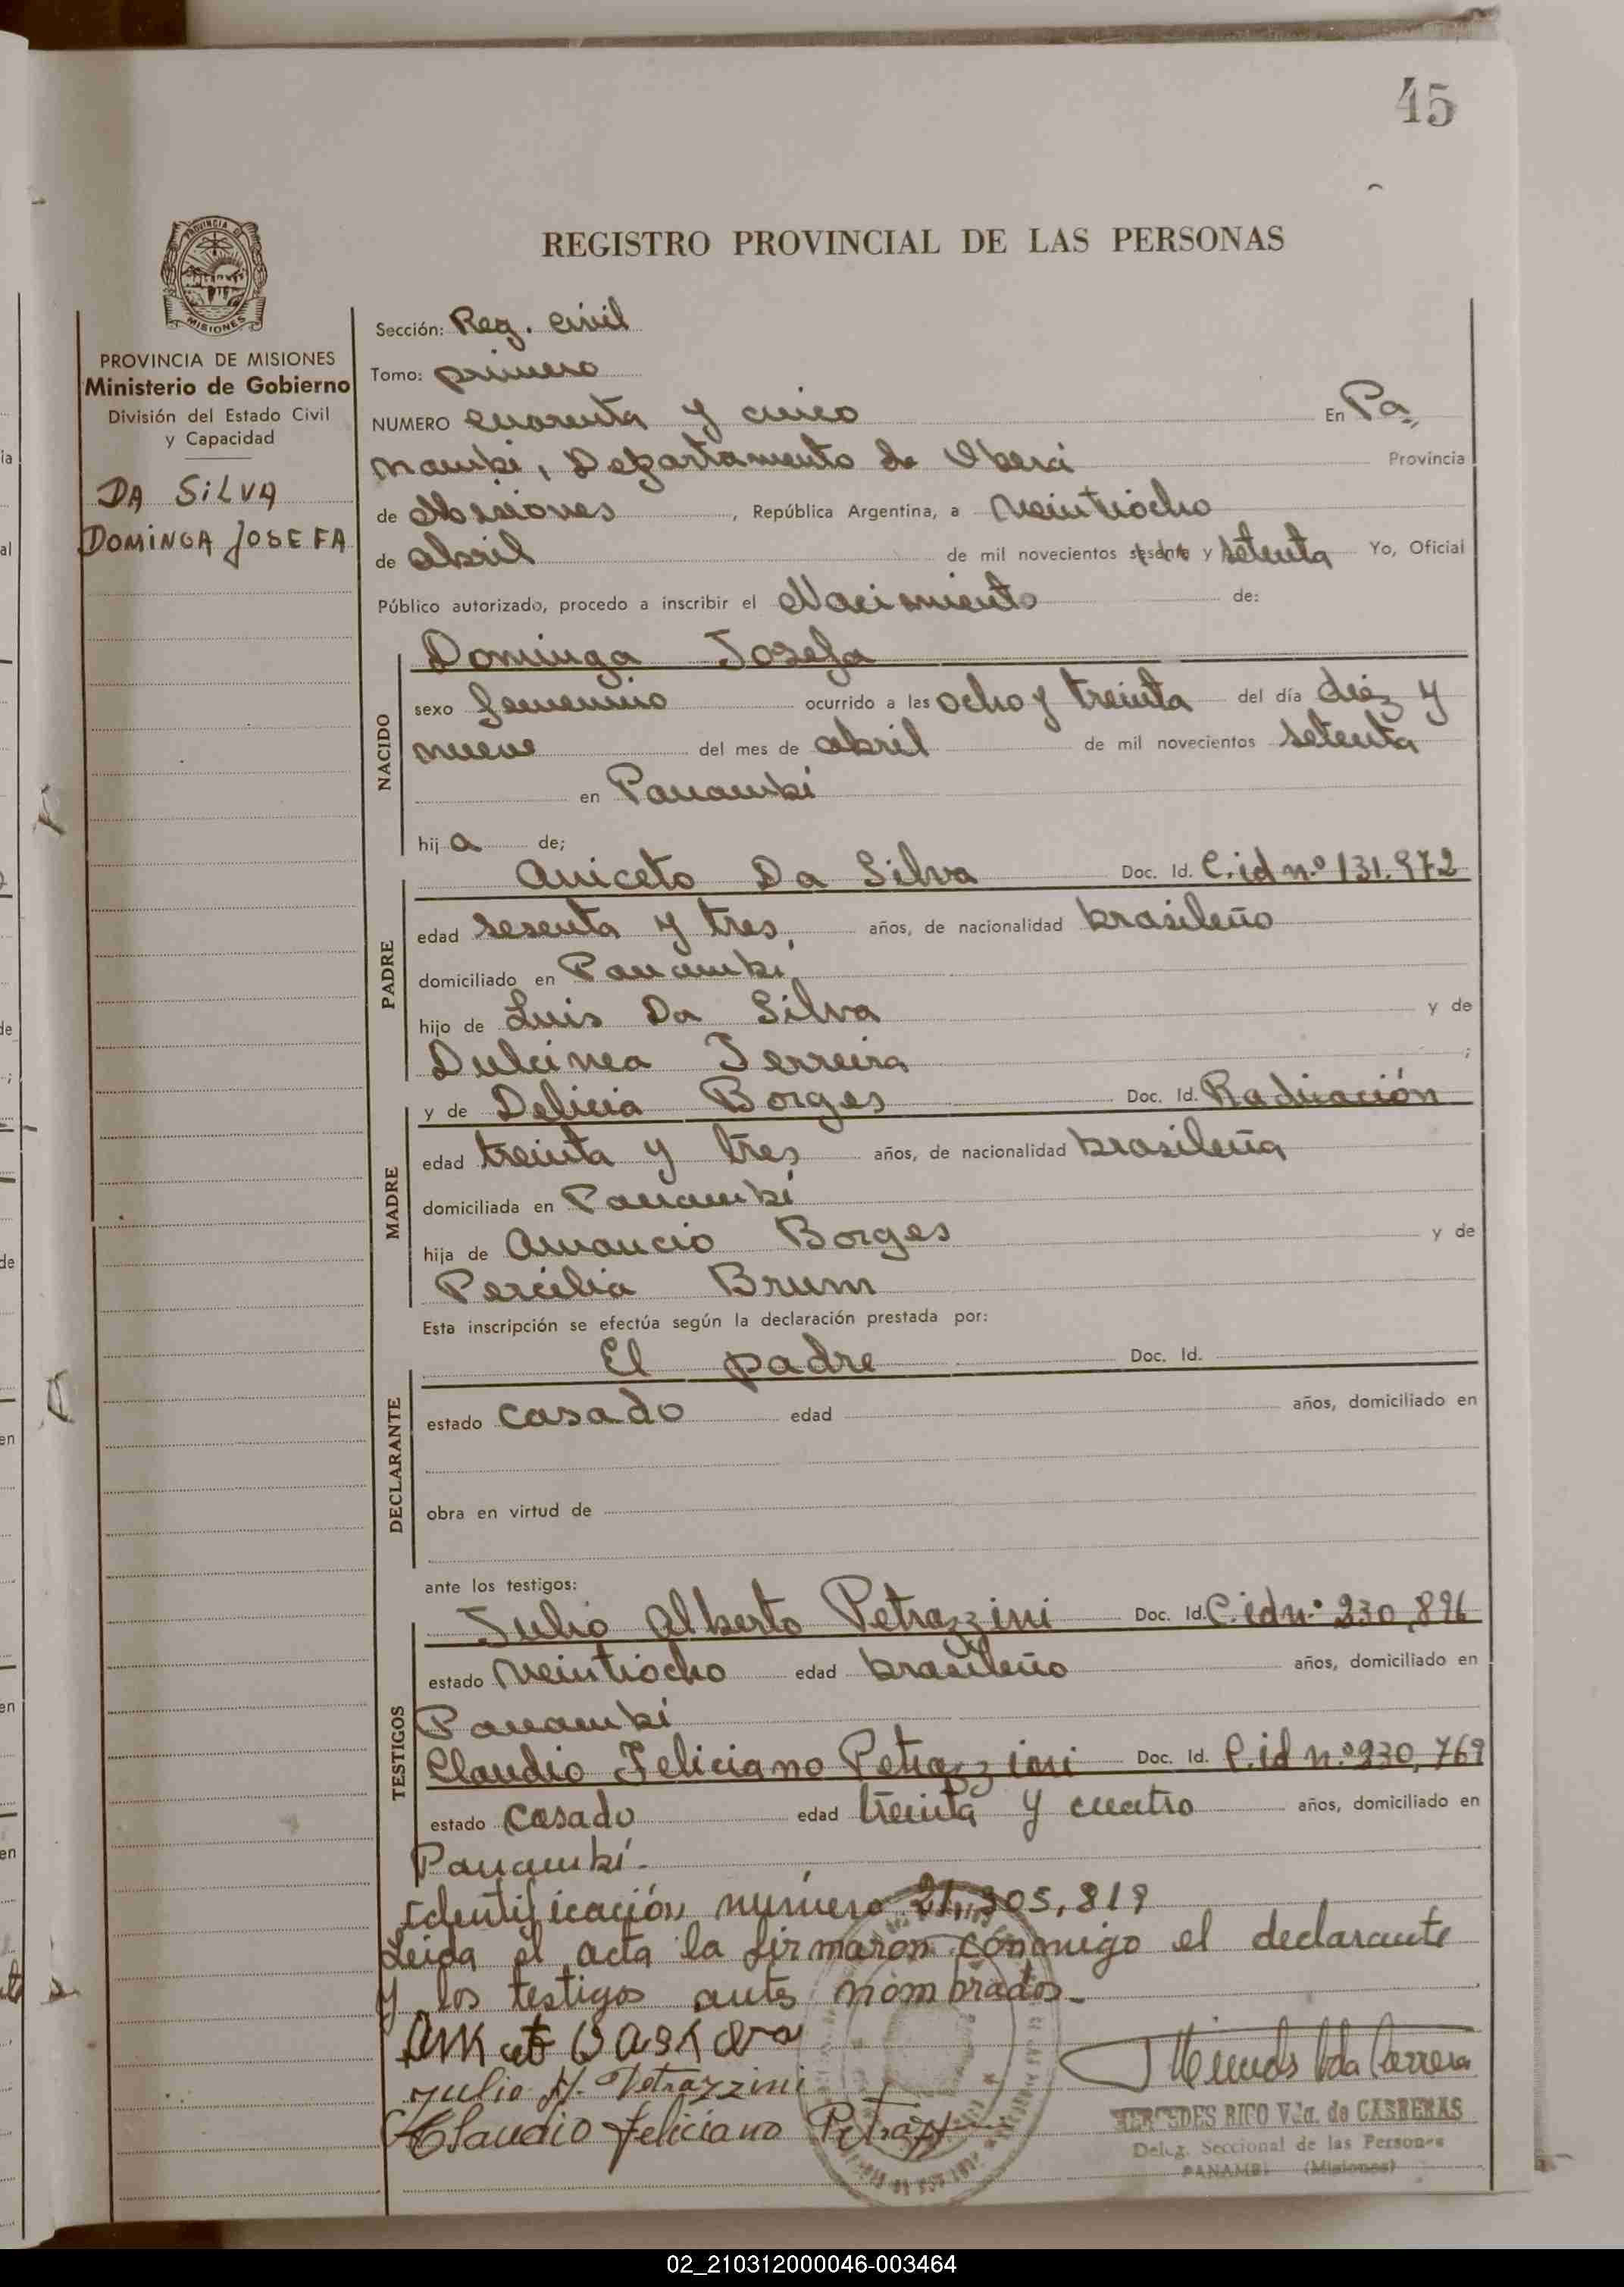 45
REGISTRO PROVINCIAL DE LAS PERSONAS
PROVINCIA DE MISIONES
Ministerio de Gobierno
División del Estado Civil
y Capacidad
DA SILVA
DOMINGA JOSEFA
Sección: Reg. Civil
Tomo: primero
NUMERO cuarenta y cinco En Pa
nambí, Departamento de Oberá Provincia
de Misiones, República Argentina, a veintiocho
de abril de mil novecientos sesenta y setenta Yo, Oficial
Público autorizado, procedo a inscribir el Nacimiento de:
NACIDO
Dominga Josefa
sexo femenino ocurrido a las ocho y treinta del día diez y
nueve del mes de abril de mil novecientos setenta
en Panambí
hija de;
PADRE
Aniceto Da Silva Doc. Id. C. id n.º 131.972
edad sesenta y tres, años, de nacionalidad brasileño
domiciliado en Panambí
hijo de Luis Da Silva y de
Dulcinea Ferreira ;
MADRE
y de Delicia Borges Doc. Id. Radicación
edad treinta y tres años, de nacionalidad brasileña
domiciliada en Panambí
hija de Amancio Borges y de
Percilia Brum
Esta inscripción se efectúa según la declaración prestada por:
DECLARANTE
El padre Doc. Id.
estado casado edad años, domiciliado en
obra en virtud de
ante los testigos:
TESTIGOS
Julio Alberto Petrazzini Doc. Id. C. id n.º 230,896
estado veintiocho edad brasileño años, domiciliado en
Panambí
Claudio Feliciano Petrazzini Doc. Id. C. id n.º 230,769
estado casado edad treinta y cuatro años, domiciliado en
Panambí.
Identificación número 21,305,819
Leida el acta la firmaron conmigo el declarante
y los testigos antes nombrados.
Julio A. Petrazzini
Claudio Feliciano
MERCEDES RIFO Vda. de CARRERAS
Deleg. Seccional de las Personas
PANAMBI (Misiones)
02_210312000046-003464